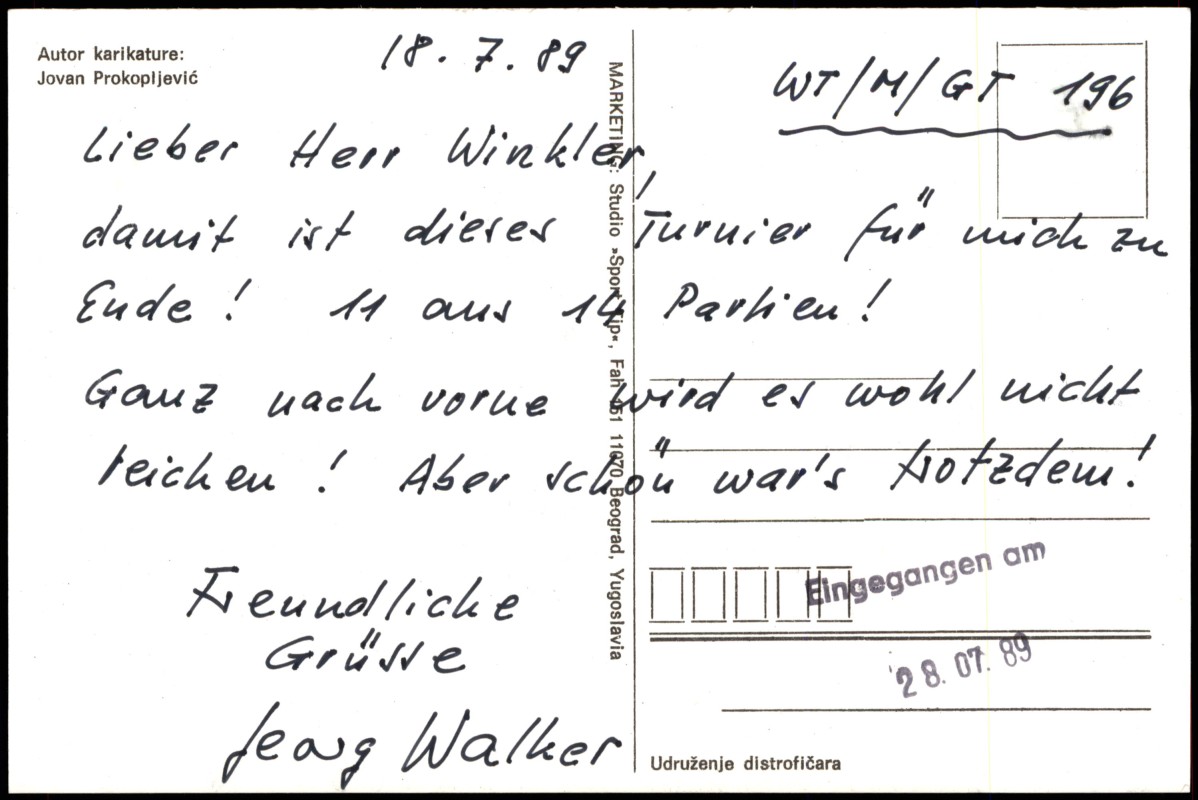 Autor karikature:
Jovan Prokopljević
18. 7. 89
WT/M/GT 196
Lieber Herr Winkler,
damit ist dieses Turnier für mich zu
Ende! 11 aus 14 Partien!
Ganz nach vorne wird es wohl nicht
reichen! Aber schön war's trotzdem!
Freundliche
Grüsse
Georg Walker
MARKETING: Studio »Sport Tip«, Fah 451 11070 Beograd, Yugoslavia
Eingegangen am
28. 07. 89
Udruženje distrofičara